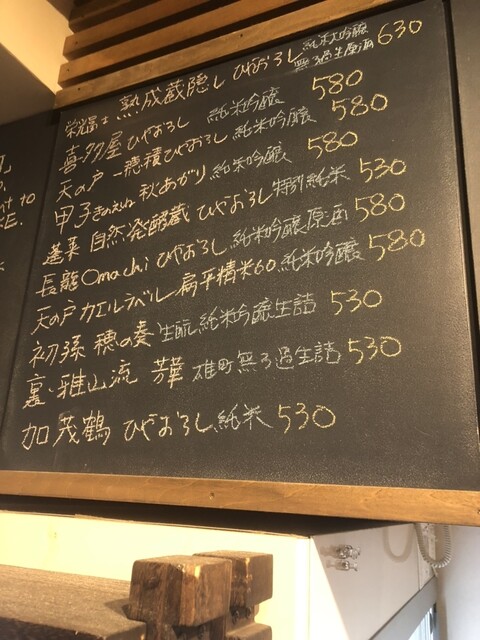 栄光冨士 熟成蔵隠し ひやおろし 純米大吟醸 無ろ過生原酒 630
喜多屋 ひやおろし 純米吟醸 580
天の戸 一穂積ひやおろし 純米吟醸 580
甲子きのえね 秋あがり 純米吟醸 580
蓬莱 自然発酵蔵 ひやおろし 特別純米 530
長龍 Omachi ひやおろし 純米吟醸原酒 580
天の戸 カエルラベル 扁平精米60 純米吟醸 580
初孫 穂の奏 生酛 純米吟醸生詰 530
裏・雅山流 芳華 雄町無ろ過生詰 530
加茂鶴 ひやおろし 純米 530
to
E.